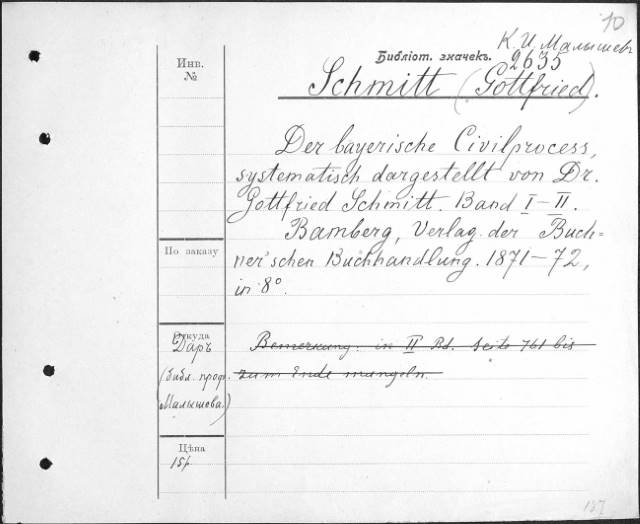 10
К. И. Малышев
Библіот. значекъ.
2635
Инв.
№
Schmitt (Gottfried).
Der bayerische Civilprocess,
systematisch dargestellt von Dr.
Gottfried Schmitt. Band I–II.
Bamberg, Verlag der Buch=
ner'schen Buchhandlung. 1871–72,
in 8°.
По заказу
Откуда
Даръ
(библ. проф.
Малышова.)
Bemerkung: in II Bd. Seite 761 bis
zum Ende mangeln.
Цѣна
15р.
187